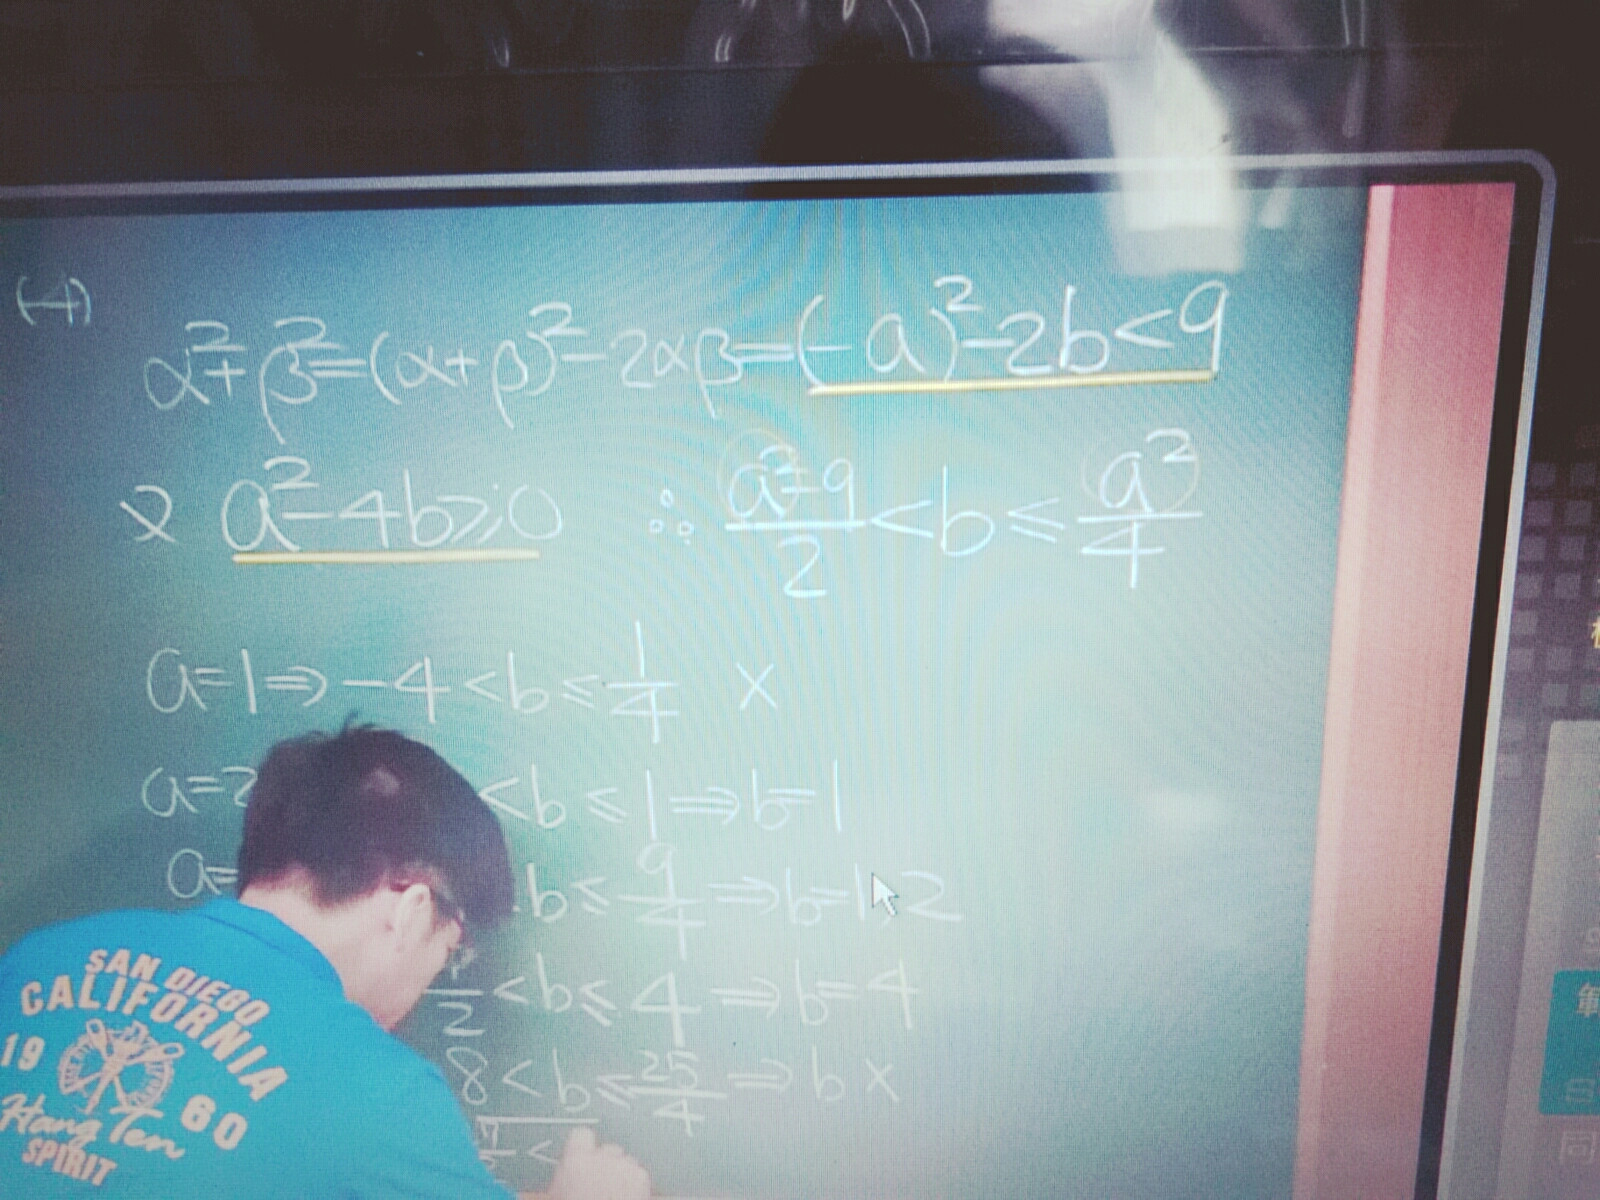 (4)
α²+β²=(α+β)²-2αβ=(-a)²-2b<9
又 a²-4b≥0 ∴ (a²-9)/2 <b≤ a²/4
a=1⇒-4<b≤ 1/4 ×
a=2 <b≤1⇒b=1
a= b≤ 9/4 ⇒b=1,2
/2 <b≤4⇒b=4
8<b≤ 25/4 ⇒b×
<
SAN DIEGO
CALIFORNIA
19 60
Hang Ten
SPIRIT
範
同